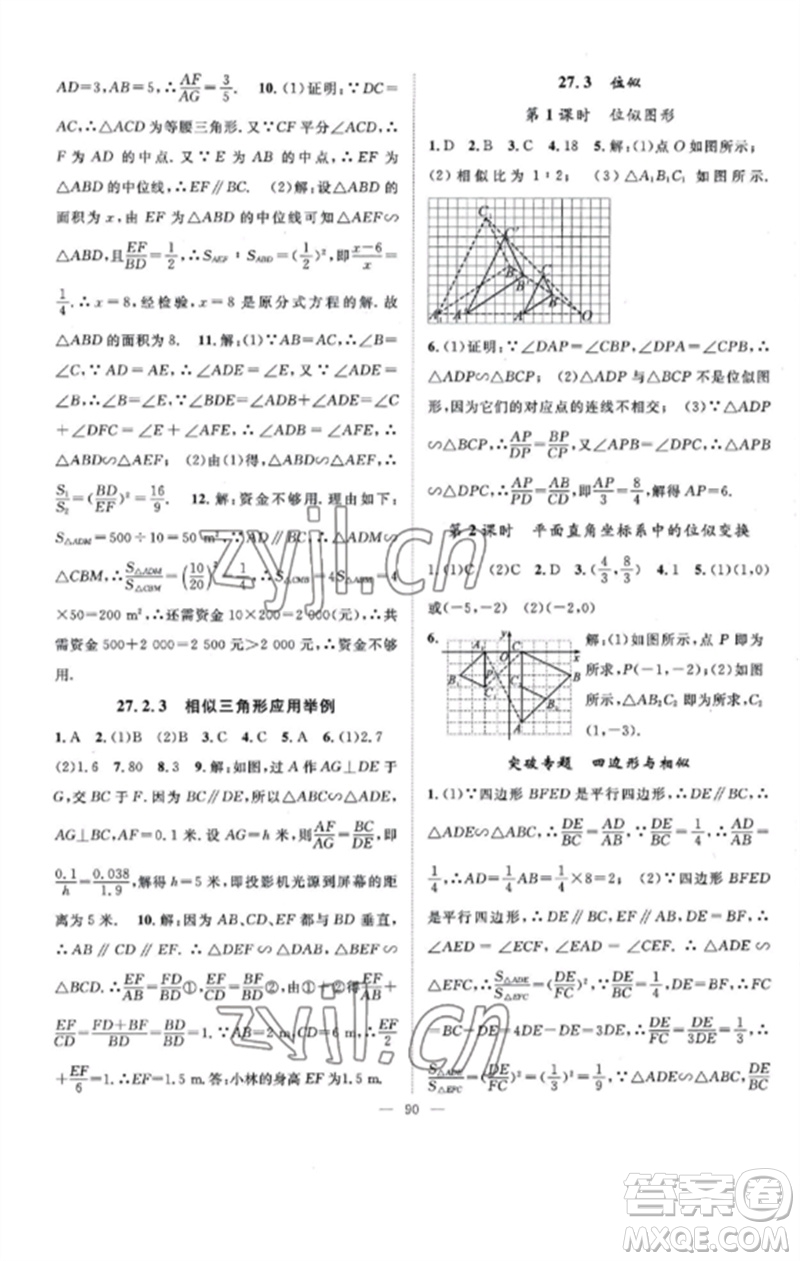 AD=3,AB=5,∴AF/AG=3/5. 10.(1)证明:∵DC=
AC,∴△ACD为等腰三角形.又∵CF平分∠ACD,∴
F为AD的中点.又∵E为AB的中点,∴EF为
△ABD的中位线,∴EF∥BC. (2)解:设△ABD的
面积为x,由EF为△ABD的中位线可知△AEF∽
△ABD,且EF/BD=1/2,∴S△AEF:S△ABD=(1/2)²,即(x-6)/x=
1/4.∴x=8,经检验,x=8是原分式方程的解.故
△ABD的面积为8. 11.解:(1)∵AB=AC,∴∠B=
∠C,∵AD=AE,∴∠ADE=∠E,又∵∠DAE=
∠B,∴∠B=∠E,∵∠BDE=∠ADB+∠ADE=∠C
+∠DFC=∠E+∠AFE,∴∠ADB=∠AFE,∴
△ABD∽△AEF; (2)由(1)得,△ABD∽△AEF,∴
S₁/S₂=(BD/EF)²=16/9. 12.解:资金不够用.理由如下:
S△ADM=500÷10=50(m²),∵AD∥BC,∴△ADM∽
△CBM,∴S△ADM/S△CBM=(10/20)²=1/4,∴S△CMB=4S△ADM=4
×50=200 m²,∴还需资金10×200=2 000(元),∴共
需资金500+2 000=2 500元>2 000元,∴资金不够
用.
27.2.3 相似三角形应用举例
1.A 2.(1)B (2)B 3.C 4.C 5.A 6.(1)2.7
(2)1.6 7.80 8.3 9.解:如图,过A作AG⊥DE于
G,交BC于F,因为BC∥DE,所以△ABC∽△ADE,
AG⊥BC,AF=0.1米.设AG=h米,则AF/AG=BC/DE,即
0.1/h=0.038/1.9,解得h=5米,即投影机光源到屏幕的距
离为5米. 10.解:因为AB、CD、EF都与BD垂直,
∴AB∥CD∥EF,∴△DEF∽△DAB,△BEF∽
△BCD.∴EF/AB=FD/BD①,EF/CD=BF/BD②,由①+②得EF/AB+
EF/CD=(FD+BF)/BD=BD/BD=1.又∵AB=2 m,CD=6 m,∴EF/2
+EF/6=1.∴EF=1.5 m.答:小林的身高EF为1.5 m.
27.3 位似
第1课时 位似图形
1.D 2.B 3.C 4.18 5.解:(1)点O如图所示;
(2)相似比为1:2; (3)△A₁B₁C₁如图所示.
C₁ C′ C
B₁ B′ B
A₁ A′ A O
6.(1)证明:∵∠DAP=∠CBP,∠DPA=∠CPB,∴
△ADP∽△BCP; (2)△ADP与△BCP不是位似图
形,因为它们的对应点的连线不相交; (3)∵△ADP
∽△BCP,∴AP/DP=BP/CP,又∠APB=∠DPC,∴△APB
∽△DPC,∴AP/PD=AB/CD,即AP/3=8/4,解得AP=6.
第2课时 平面直角坐标系中的位似变换
1.(1)C (2)C 2.D 3.(4/3,8/3) 4.1 5.(1)(1,0)
或(-5,-2) (2)(-2,0)
6. 解:(1)如图所示,点P即为
所求,P(-1,-2); (2)如图
所示,△AB₂C₂即为所求,C₂
(1,-3).
突破专题 四边形与相似
1.(1)∵四边形BFED是平行四边形,∴DE∥BC,∴
△ADE∽△ABC,∴DE/BC=AD/AB,∵DE/BC=1/4,∴AD/AB=
1/4,∴AD=1/4AB=1/4×8=2; (2)∵四边形BFED
是平行四边形,∴DE∥BC,EF∥AB,DE=BF,∴
∠AED=∠C,∠A=∠CEF.∴△ADE∽
△EFC,∴S△ADE/S△EFC=(DE/FC)²,∵DE/BC=1/4,DE=BF,∴FC
=BC-BF=4DE-DE=3DE,∴DE/FC=DE/3DE=1/3,∴
S△ADE/S△EFC=(DE/FC)²=(1/3)²=1/9,∵△ADE∽△ABC,DE/BC
— 90 —
zyjl.cn
zyjl.cn
答案卷
MXQE.COM